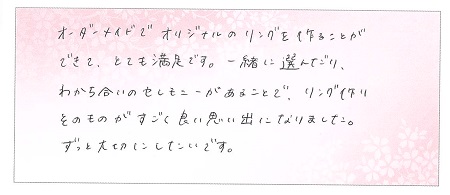 オーダーメイドでオリジナルのリングを作ることが
できて、とても満足です。一緒に選んだり、
わかち合いのセレモニーがあることで、リング作り
そのものがすごく良い思い出になりました。
ずっと大切にしたいです。